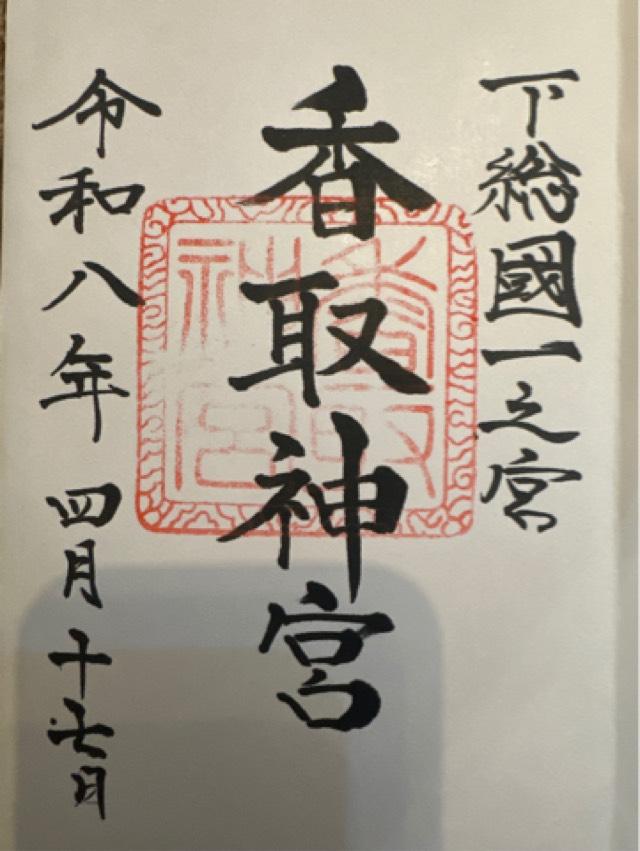 下総國一之宮
香取神宮
香取神宮
令和八年 四月十七日